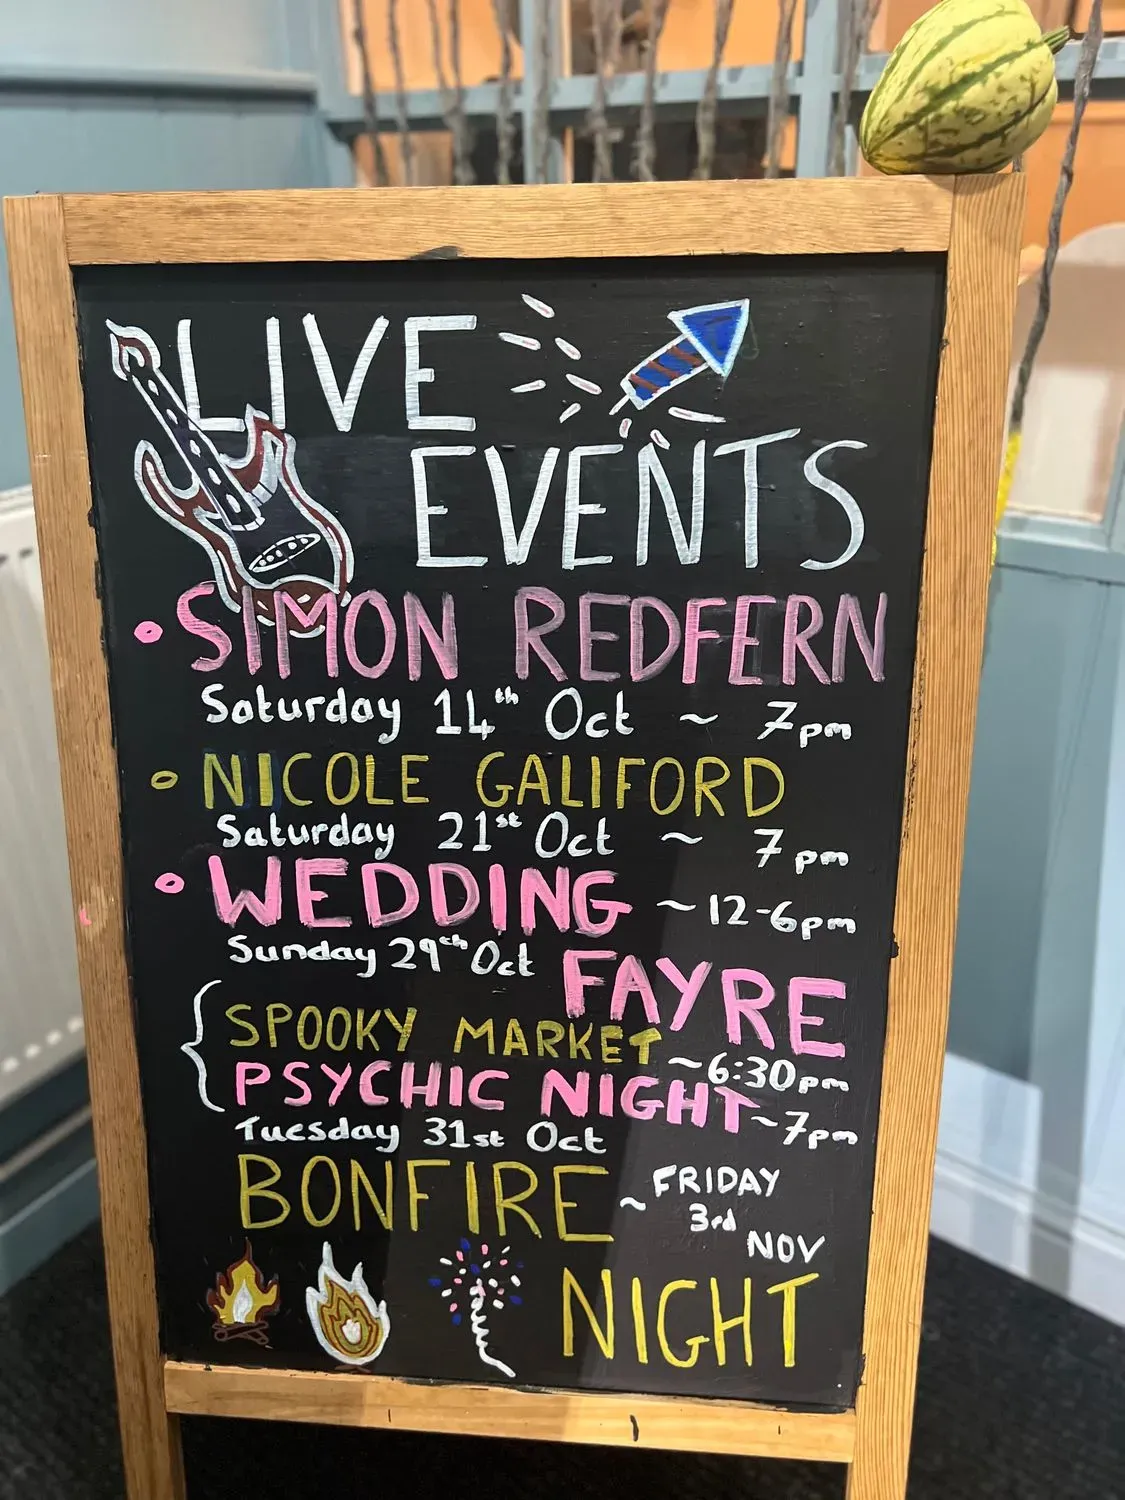 LIVE
EVENTS
• SIMON REDFERN
Saturday 14th Oct ~ 7pm
• NICOLE GALIFORD
Saturday 21st Oct ~ 7pm
• WEDDING ~ 12-6pm
Sunday 29th Oct FAYRE
SPOOKY MARKET ~ 6:30pm
PSYCHIC NIGHT ~ 7pm
Tuesday 31st Oct
BONFIRE ~ FRIDAY
3rd
NOV
NIGHT